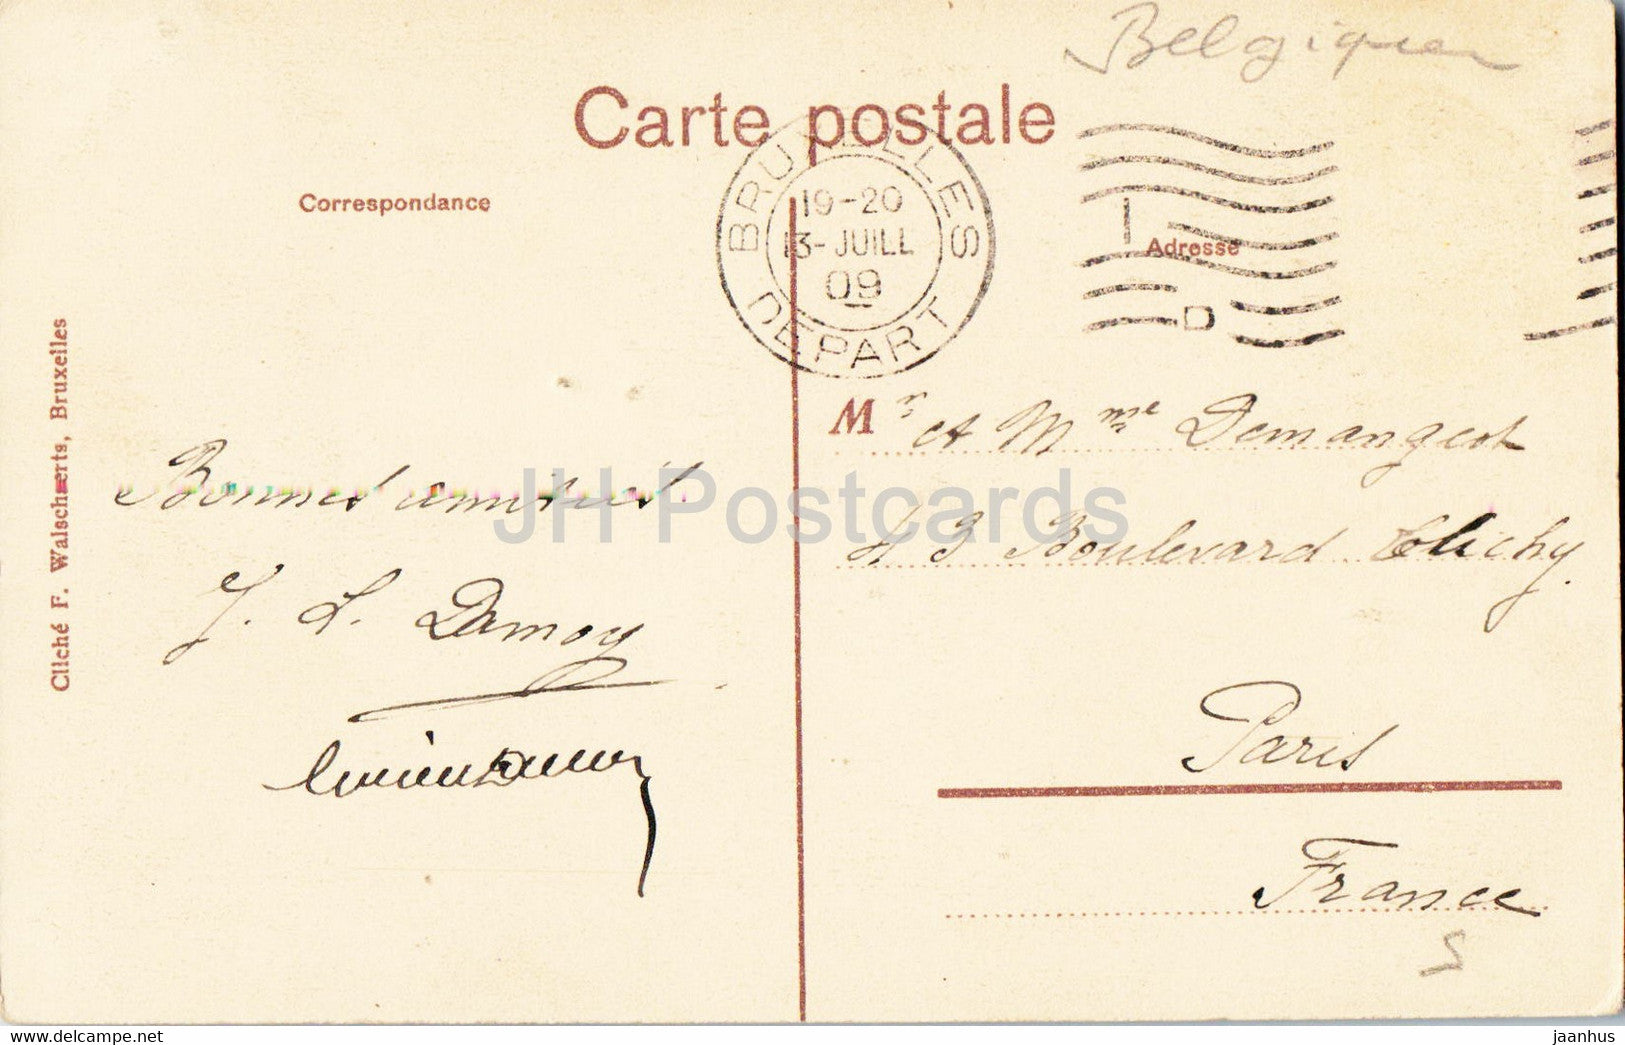 Belgique
Carte postale
Correspondance
BRUXELLES
19-20
13-JUILL
09
DEPART
Adresse
Cliché F. Walschaerts, Bruxelles
Bonnes amitiés.
J. L. Damoy
Mr et Mme Demangeot
43 Boulevard Clichy.
Paris
France
JH Postcards
jaanhus
https://www.jhpostcards.com